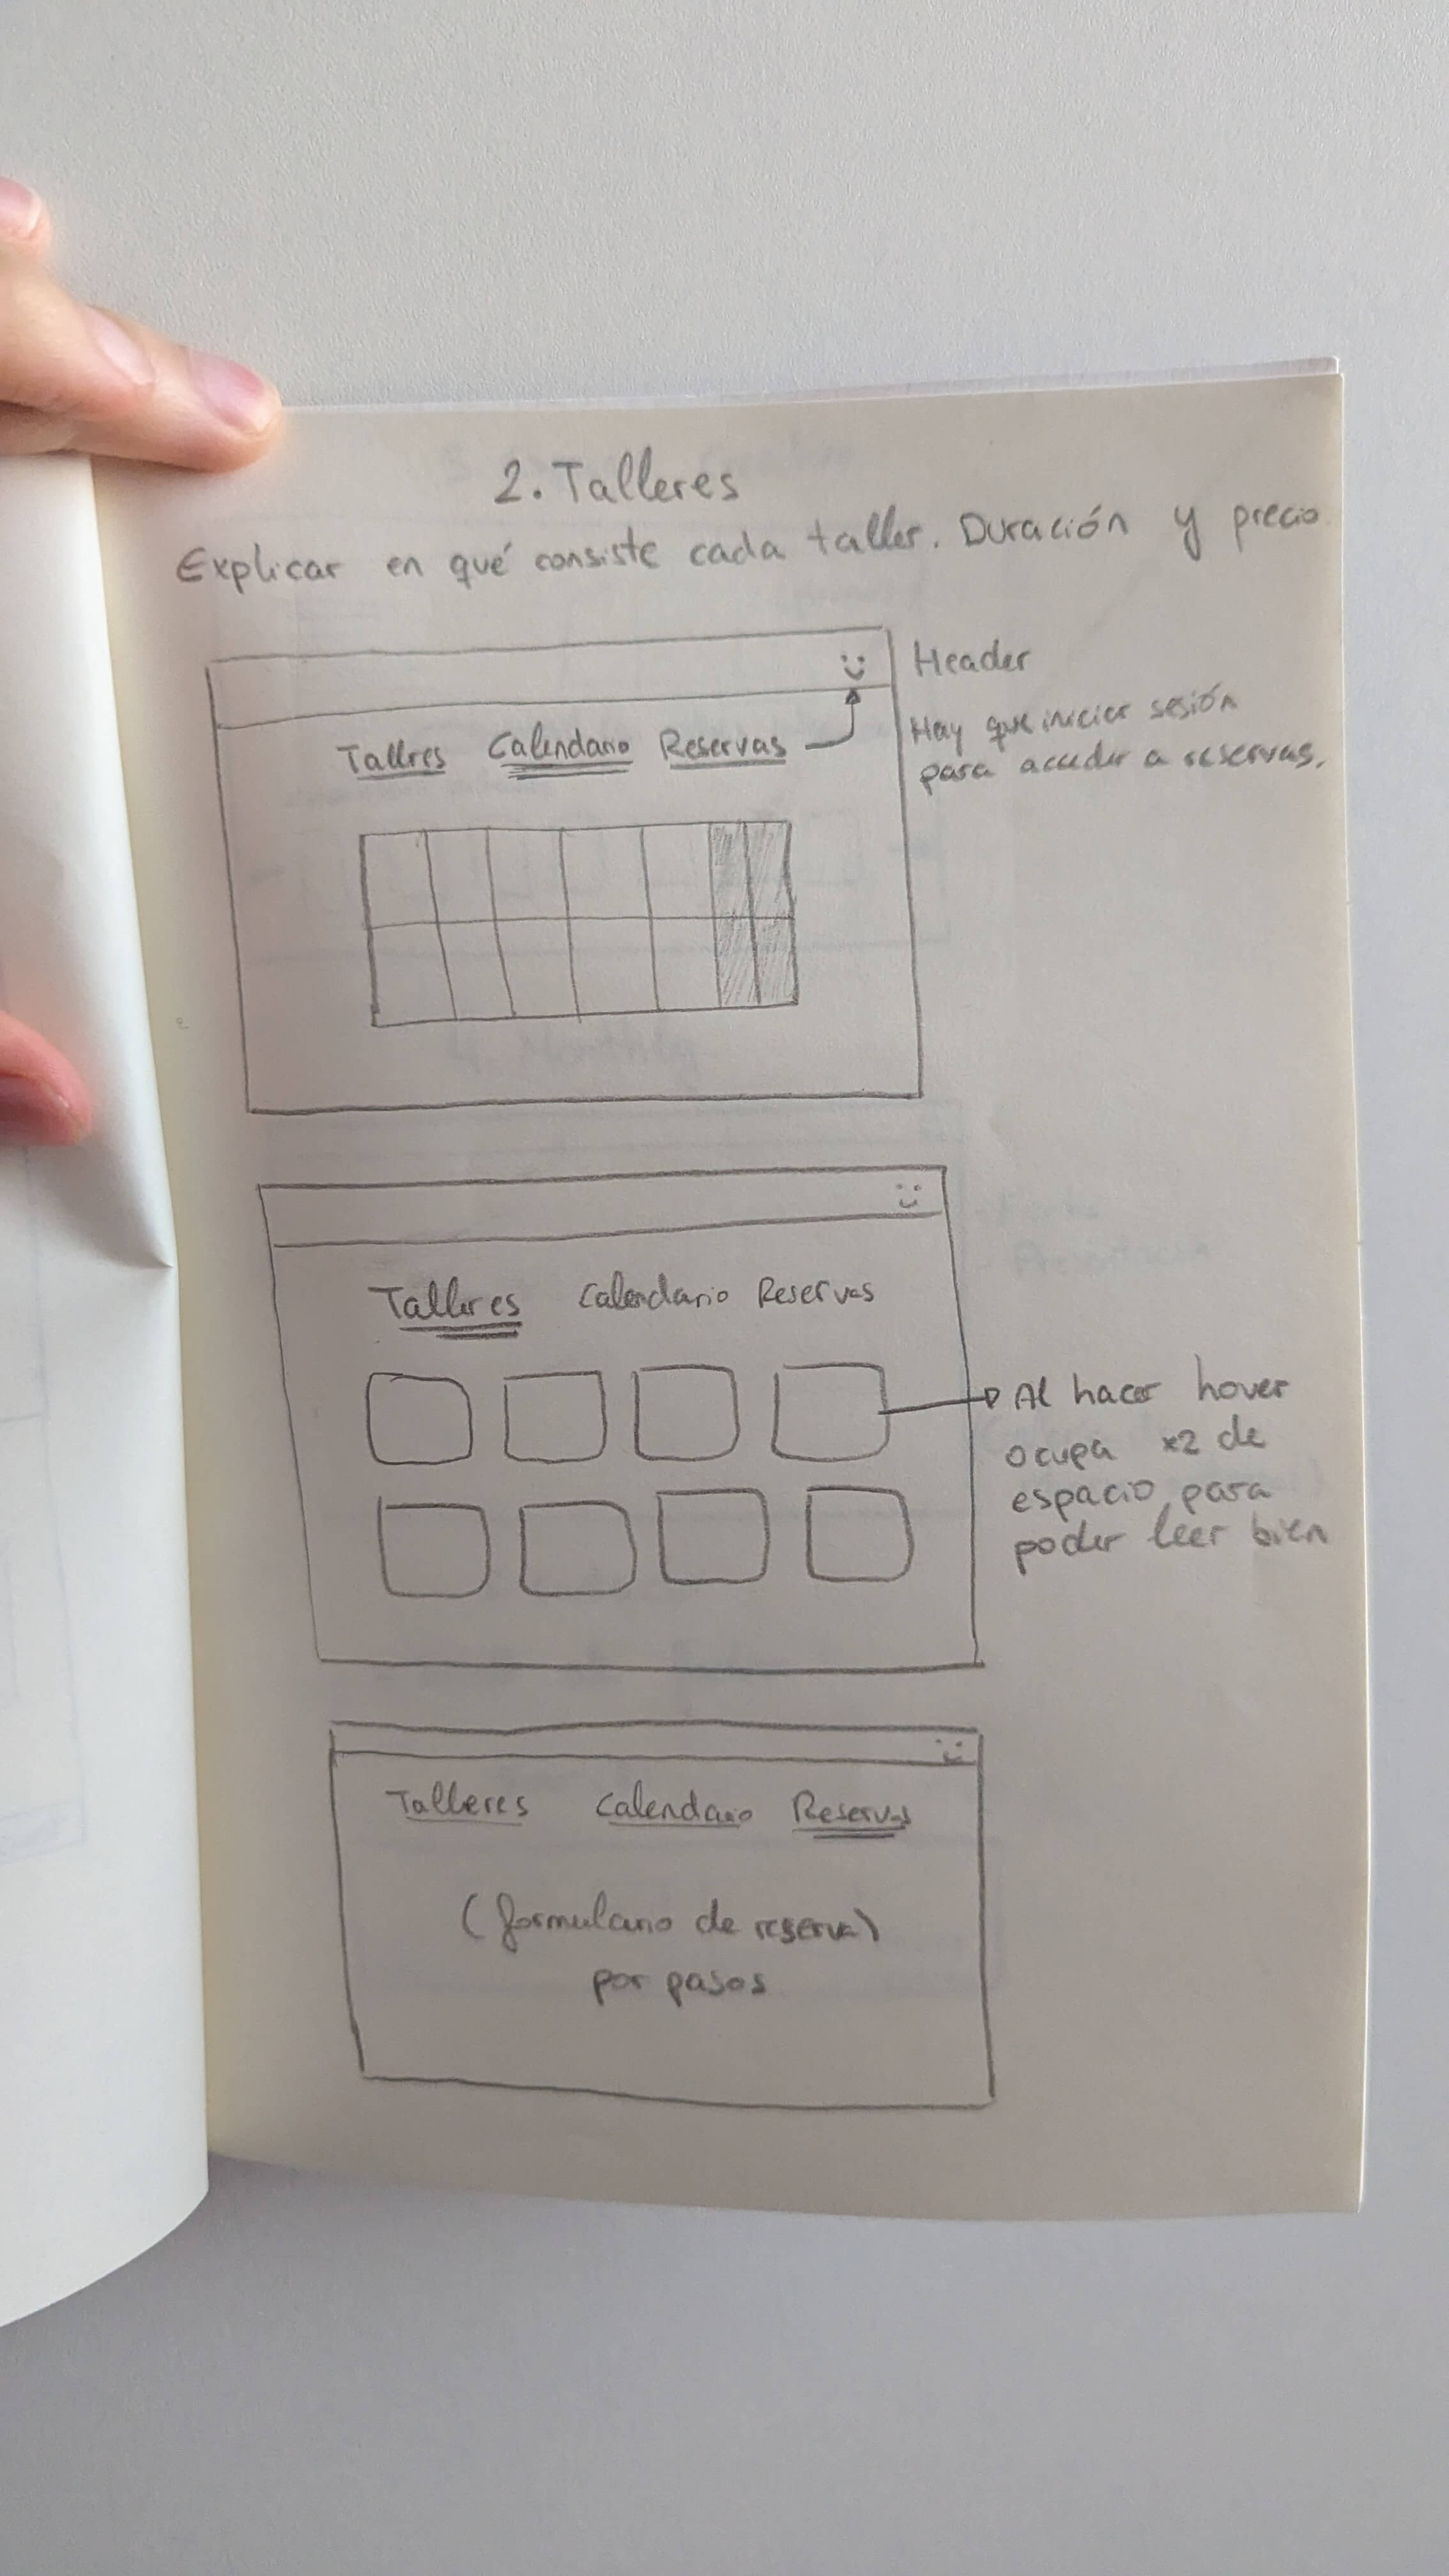 2. Talleres
Explicar en qué consiste cada taller. Duración y precio.
Header
Hay que iniciar sesión
para acceder a reservas.
Tallres Calendario Reservas
Talleres Calendario Reservas
Al hacer hover
ocupa x2 de
espacio, para
poder leer bien
Talleres Calendario Reservas
(formulario de reserva)
por pasos